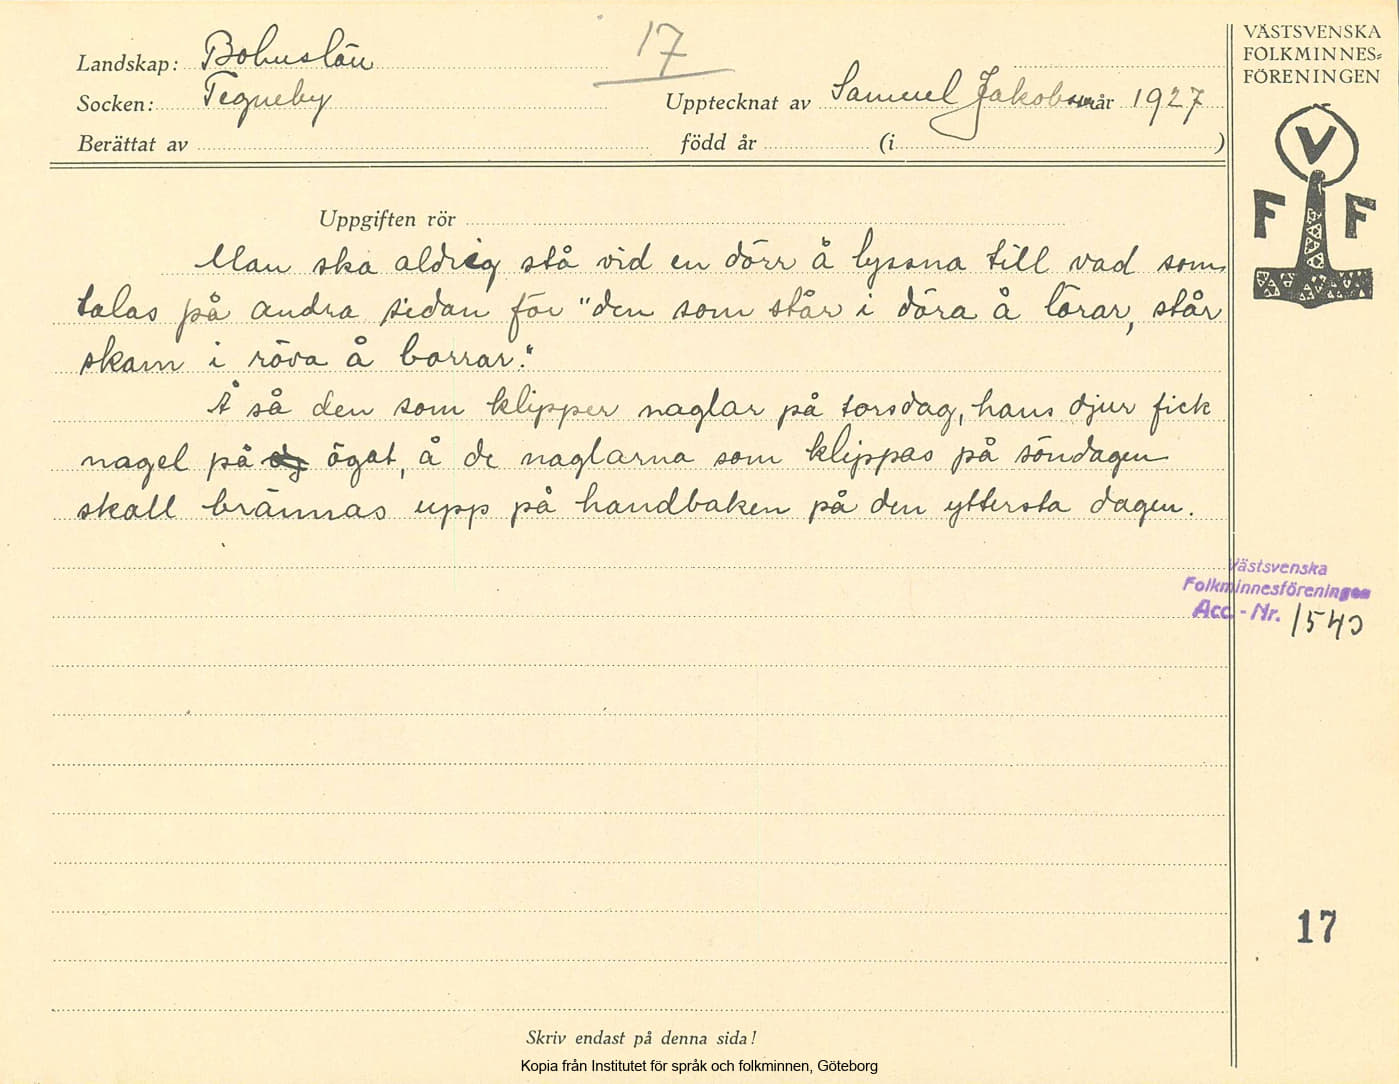 Landskap: Bohuslän
17
VÄSTSVENSKA
FOLKMINNES=
FÖRENINGEN
Socken: Tegneby
Upptecknat av Samuel Jakobsson år 1927
Berättat av
född år (i )
V
F F
Uppgiften rör
Man ska aldrig stå vid en dörr å lyssna till vad som
talas på andra sidan för "den som står i döra å lörar, står
skam i röva å borrar."
Å så den som klipper naglar på torsdag, hans djur fick
nagel på ögat, å de naglarna som klippas på söndagen
skall brännas upp på handbaken på den yttersta dagen.
Västsvenska
Folkminnesföreningen
Acc. - Nr. 1540
17
Skriv endast på denna sida!
Kopia från Institutet för språk och folkminnen, Göteborg